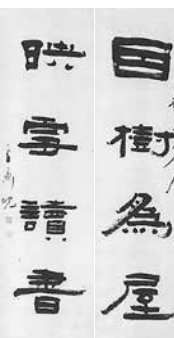 因樹為屋
映雪讀書